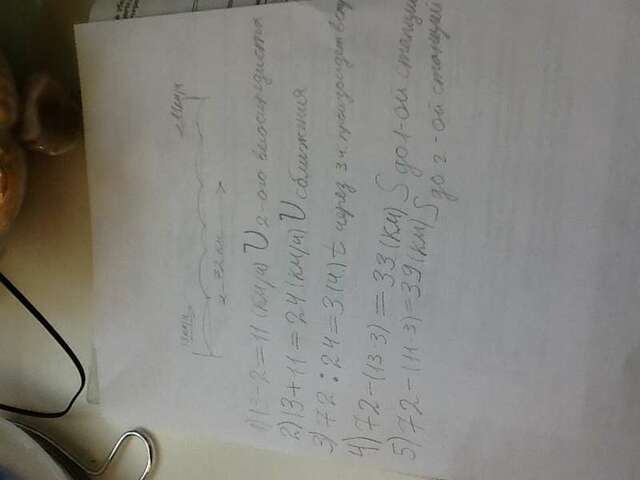 72 км
1) 13-2=11 (км/ч) V 2-ого велосипедиста
2) 13+11=24 (км/ч) V сближения
3) 72:24=3 (ч) t через 3 ч произойдет
4) 72-(13·3)=33 (км) S до 1-ой станции
5) 72-(11·3)=39 (км) S до 2-ой станции